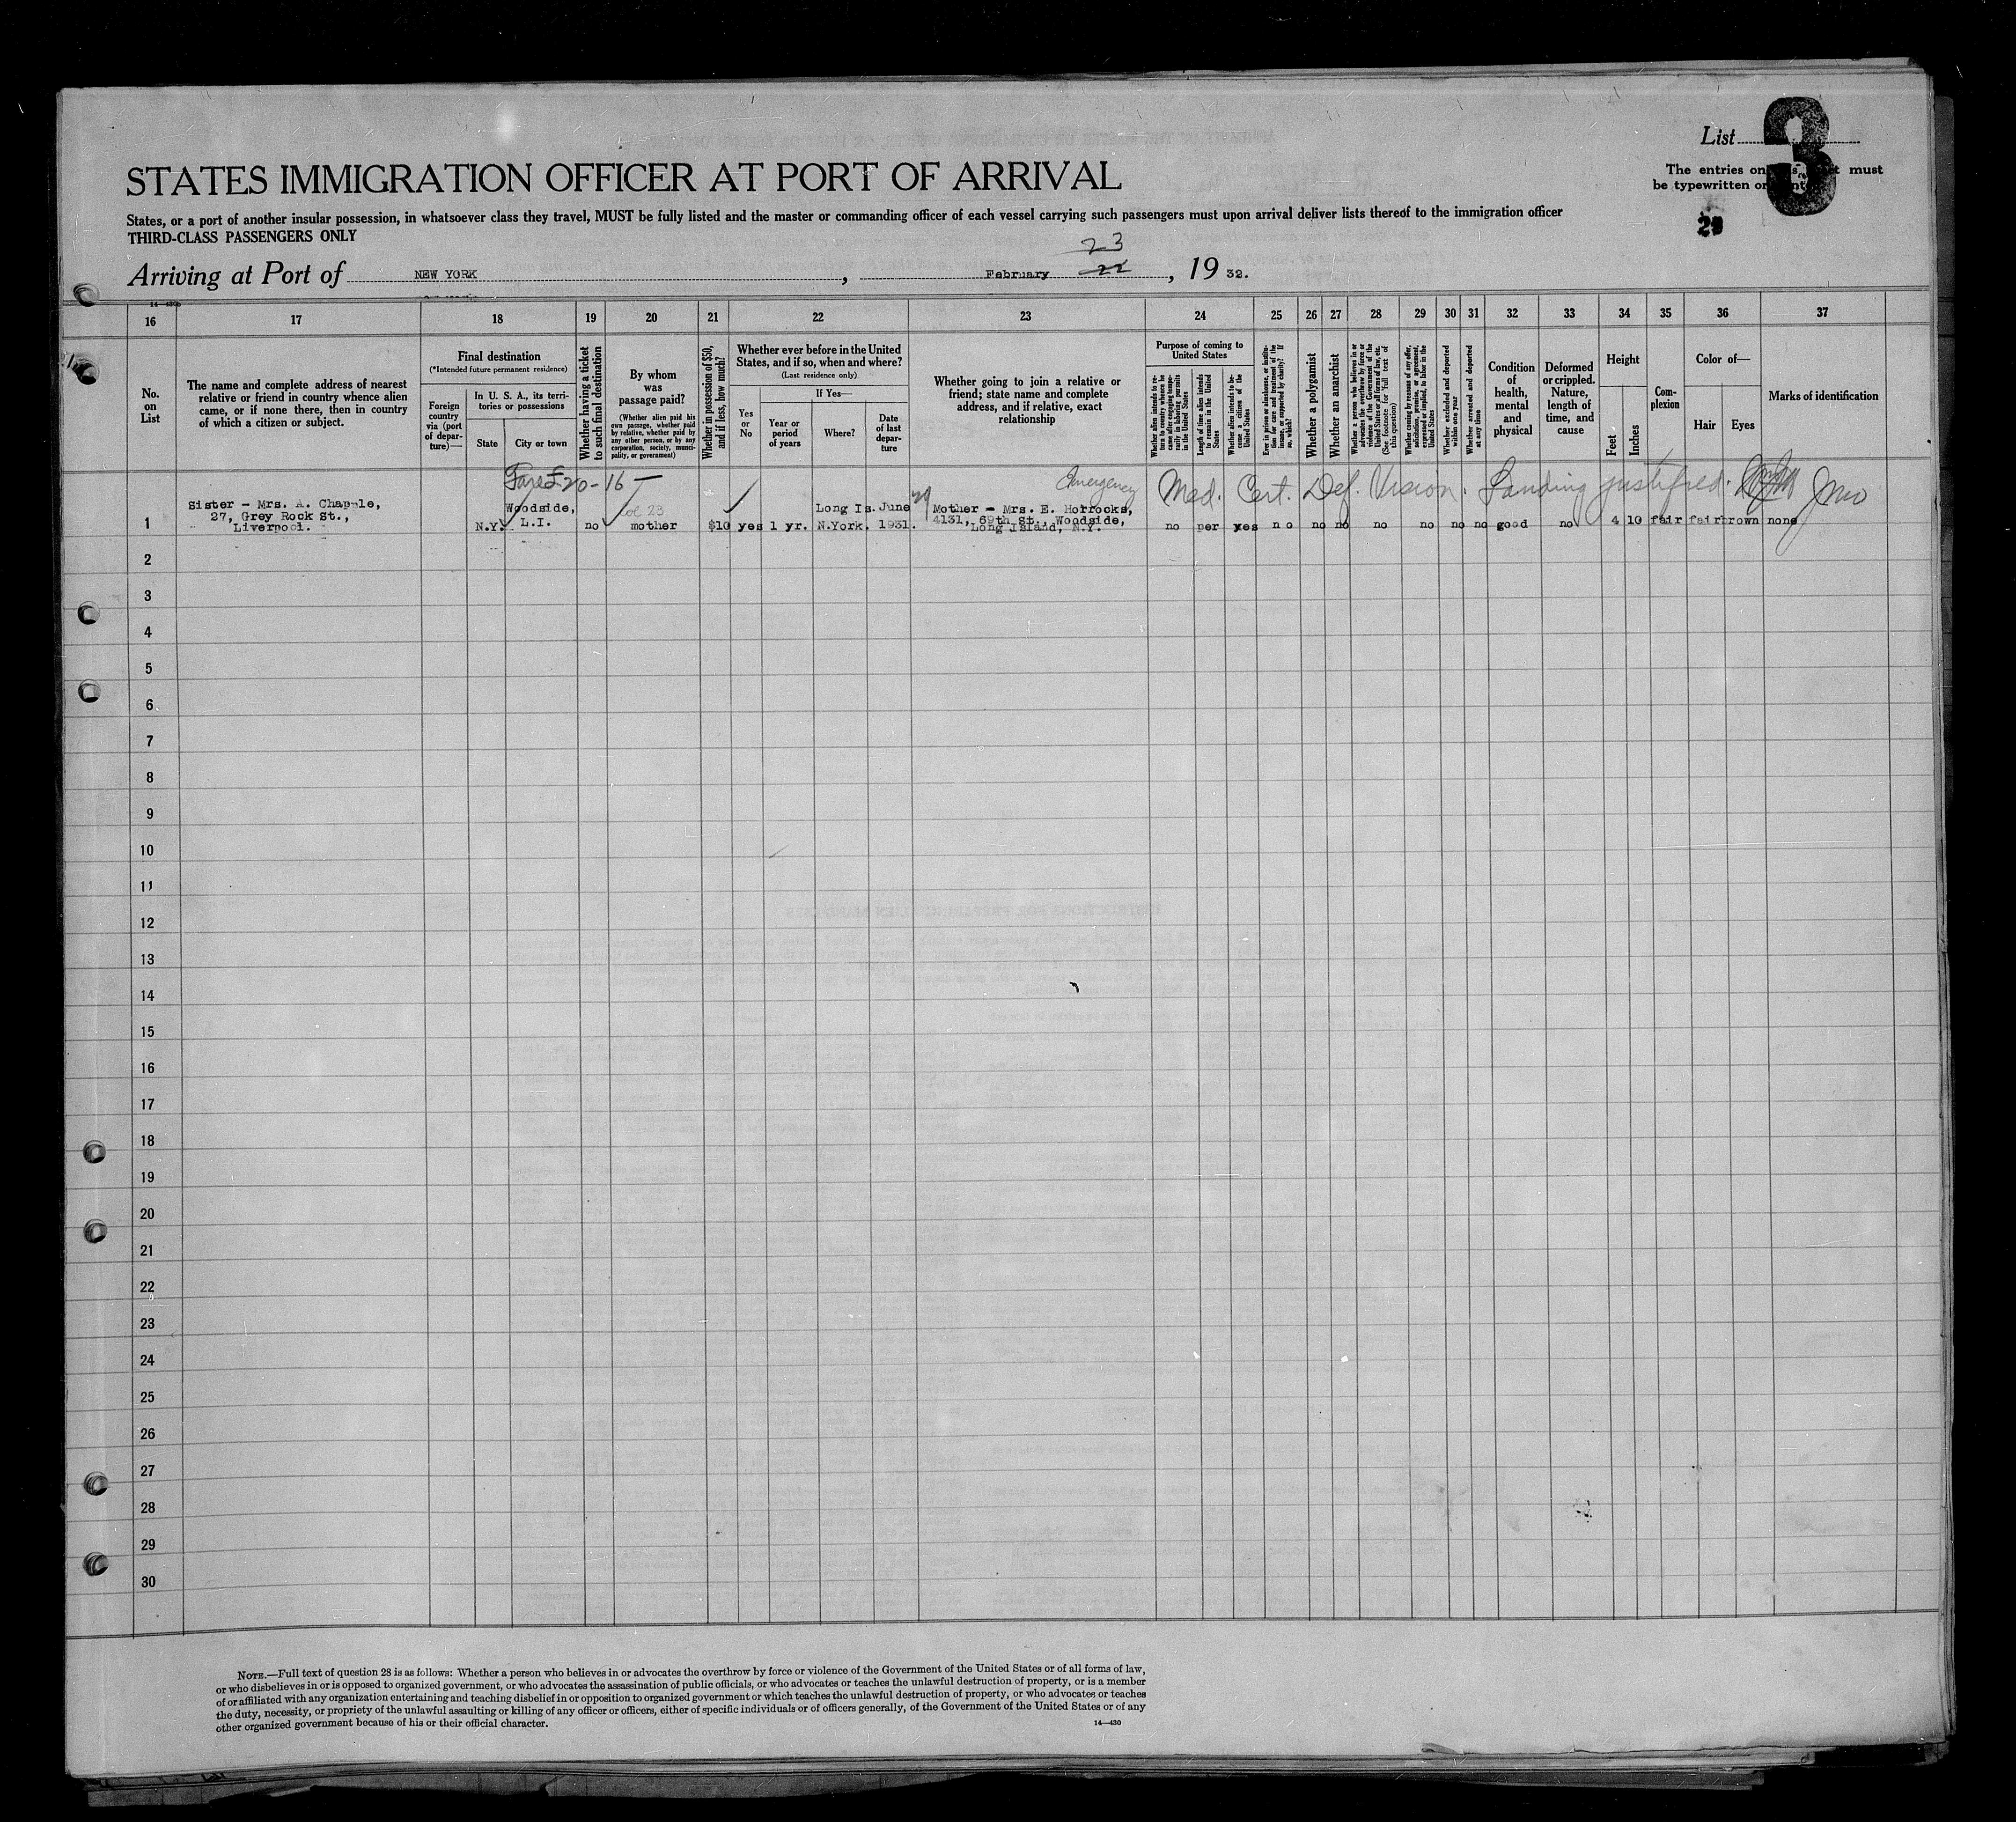 List 3
STATES IMMIGRATION OFFICER AT PORT OF ARRIVAL
The entries on must
be typewritten or
States, or a port of another insular possession, in whatsoever class they travel, MUST be fully listed and the master or commanding officer of each vessel carrying such passengers must upon arrival deliver lists thereof to the immigration officer
THIRD-CLASS PASSENGERS ONLY
23
Arriving at Port of NEW YORK, February 22, 19 32.
14—430
16 17 18 19 20 21 22 23 24 25 26 27 28 29 30 31 32 33 34 35 36 37
No. on List
The name and complete address of nearest
relative or friend in country whence alien
came, or if none there, then in country
of which a citizen or subject.
Final destination
(*Intended future permanent residence)
Foreign country via (port of departure)—
In U. S. A., its territories or possessions
State
City or town
Whether having a ticket to such final destination
By whom was passage paid?
(Whether alien paid his own passage, whether paid by relative, whether paid by any other person, or by any corporation, society, municipality, or government)
Whether in possession of $50, and if less, how much?
Whether ever before in the United States, and if so, when and where?
(Last residence only)
Yes or No
If Yes—
Year or period of years
Where?
Date of last departure
Whether going to join a relative or
friend; state name and complete
address, and if relative, exact
relationship
Purpose of coming to United States
Whether alien intends to return to country whence he came after engaging temporarily in laboring pursuits in the United States
Length of time alien intends to remain in the United States
Whether alien intends to become a citizen of the United States
Ever in prison or almshouse, or institution for care and treatment of the insane, or supported by charity? If so, which?
Whether a polygamist
Whether an anarchist
Whether a person who believes in or advocates the overthrow by force or violence of the Government of the United States or all forms of law, etc. (See footnote for full text of this question)
Whether coming by reason of any offer, solicitation, promise, or agreement, expressed or implied, to labor in the United States
Whether excluded and deported within one year
Whether arrested and deported at any time
Condition of health, mental and physical
Deformed or crippled. Nature, length of time, and cause
Height
Feet
Inches
Complexion
Color of—
Hair
Eyes
Marks of identification
Fare £20-16-
Emergency
Med. Cert. Def. Vision. Landing justified.
1
Sister - Mrs. A. Chapple,
27, Grey Rock St.,
Liverpool.
N.Y.
Woodside,
L.I.
no
mother
$10
yes
1 yr.
Long Is.
N.York.
June
1931.
Mother - Mrs. E. Horrocks,
4131, 69th St., Woodside,
Long Island, N.Y.
no per yes no no no no no no no good no 4 10 fair fair brown none
2
3
4
5
6
7
8
9
10
11
12
13
14
15
16
17
18
19
20
21
22
23
24
25
26
27
28
29
30
NOTE.—Full text of question 28 is as follows: Whether a person who believes in or advocates the overthrow by force or violence of the Government of the United States or of all forms of law,
or who disbelieves in or is opposed to organized government, or who advocates the assassination of public officials, or who advocates or teaches the unlawful destruction of property, or is a member
of or affiliated with any organization entertaining and teaching disbelief in or opposition to organized government or which teaches the unlawful destruction of property, or who advocates or teaches
the duty, necessity, or propriety of the unlawful assaulting or killing of any officer or officers, either of specific individuals or of officers generally, of the Government of the United States or of any
other organized government because of his or their official character.
14—430